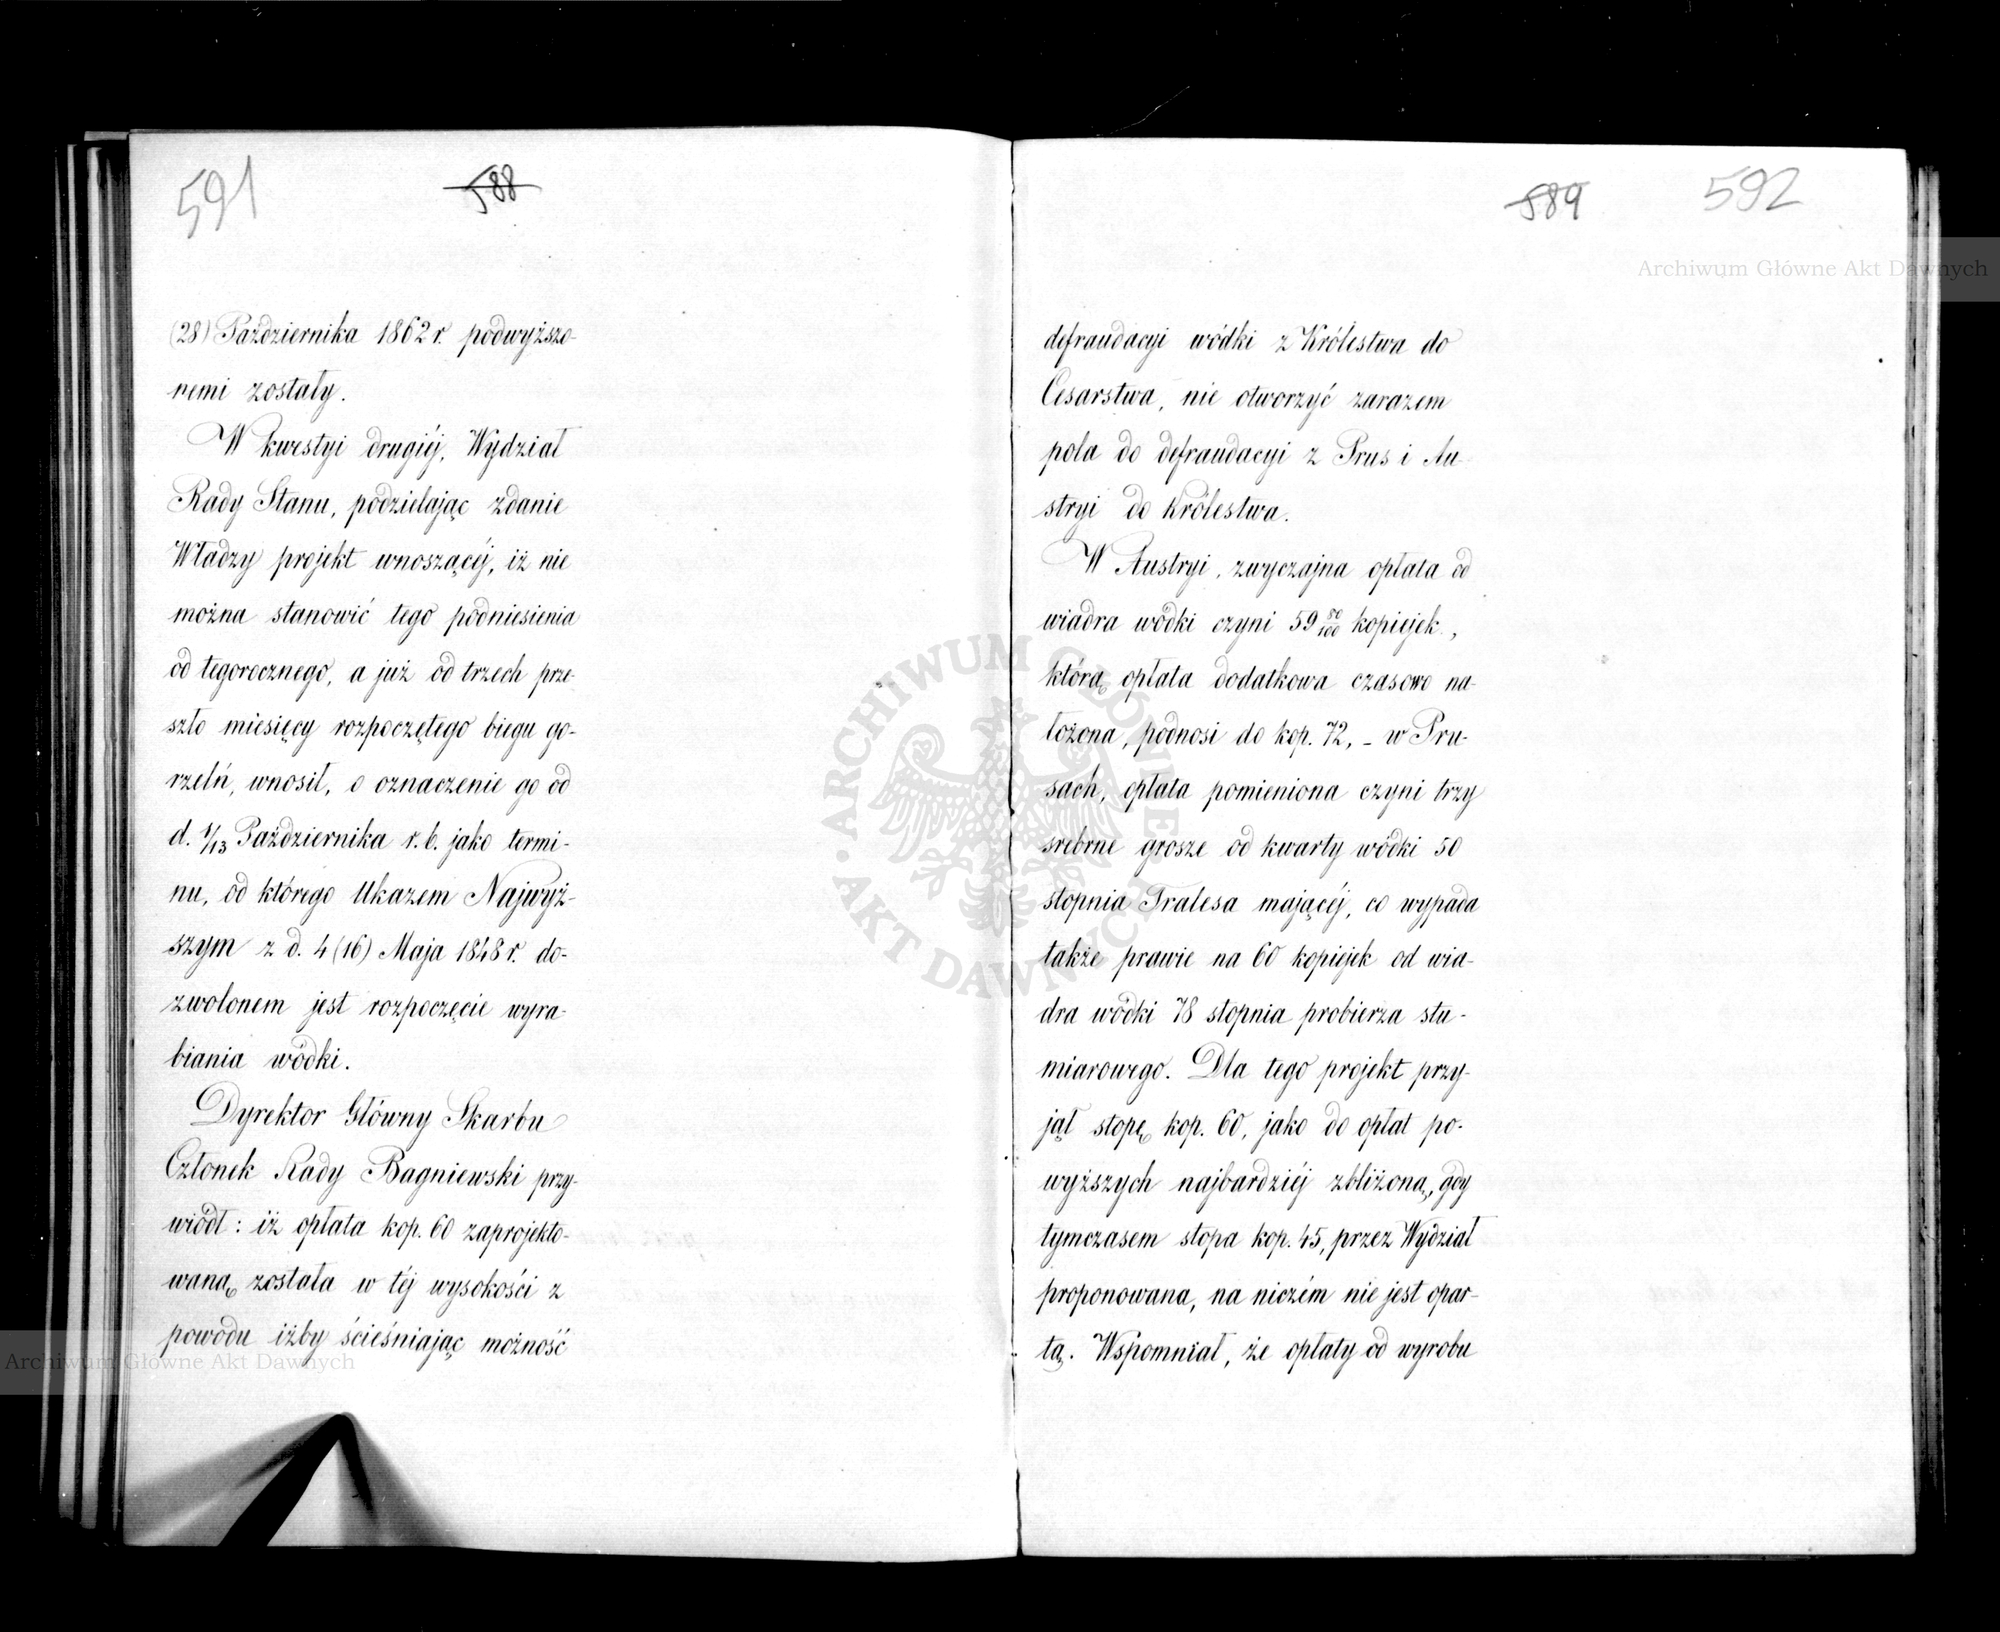 591
588
(28) Października 1862 r. podwyższo-
nemi zostały.
W kwestyi drugiéj, Wydział
Rady Stanu, podzielając zdanie
Władzy projekt wnoszącéj, iż nie
można stanowić tego podniesienia
od tegorocznego, a już od trzech prze-
szło miesięcy rozpoczętego biegu go-
rzelń, wnosił, o oznaczenie go od
d. 1/13 Października r. b. jako termi-
nu, od którego Ukazem Najwyż-
szym z d. 4 (16) Maja 1848 r. do-
zwolonem jest rozpoczęcie wyra-
biania wódki.
Dyrektor Główny Skarbu
Członek Rady Bagniewski przy-
wiódł: iż opłata kop. 60 zaprojekto-
waną została w téj wysokości z
powodu iżby ścieśniając możność
589
592
defraudacyi wódki z Królestwa do
Cesarstwa, nie otworzyć zarazem
pola do defraudacyi z Prus i Au-
stryi do Królestwa.
W Austryi, zwyczajna opłata od
wiadra wódki czyni 59 80/100 kopiejek,
którą opłata dodatkowa czasowo na-
łożona, podnosi do kop. 72, - w Pru-
sach, opłata pomieniona czyni trzy
srebrne grosze od kwarty wódki 50
stopnia Tralesa mającéj, co wypada
także prawie na 60 kopiejek od wia-
dra wódki 78 stopnia probierza stu-
miarowego. Dla tego projekt przy-
jął stopę kop. 60, jako do opłat po-
wyższych najbardziéj zbliżoną, gdy
tymczasem stopa kop. 45, przez Wydział
proponowana, na niczém nie jest opar-
tą. Wspomniał, że opłaty od wyrobu
Archiwum Główne Akt Dawnych
Archiwum Główne Akt Dawnych
ARCHIWUM GŁÓWNE
AKT DAWNYCH